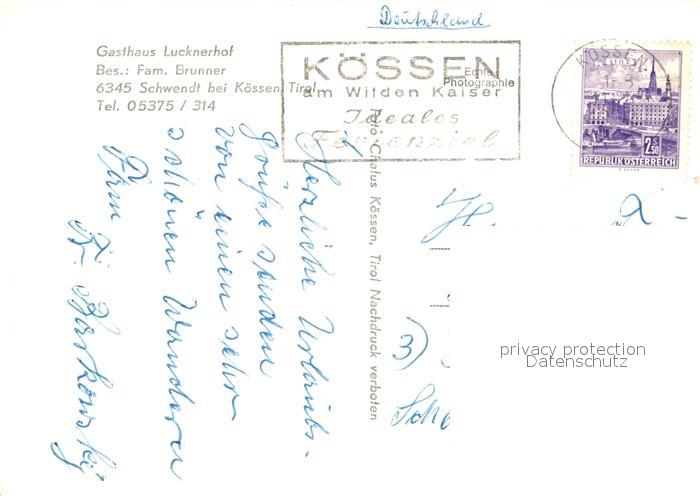 Deutschland
Gasthaus Lucknerhof
Bes.: Fam. Brunner
6345 Schwendt bei Kössen, Tirol
Tel. 05375 / 314
KÖSSEN
am Wilden Kaiser
Ideales
Ferienziel
Echte
Photographie
KÖSSEN
LINZ
2.50
REPUBLIK ÖSTERREICH
Foto Chalus Kössen, Tirol Nachdruck verboten
Herzliche Urlaubs-
grüße senden
von einen sehr
schönen Wandern
Fam
H.
3)
privacy protection
Datenschutz